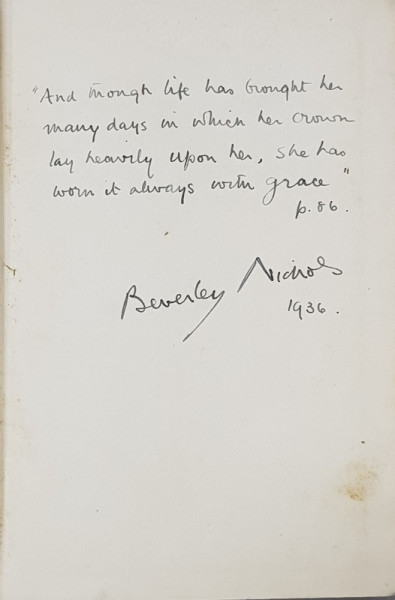 "And though life has brought her
many days in which her crown
lay heavily upon her, she has
worn it always with grace"
p. 86.
Beverley Nichols
1936.